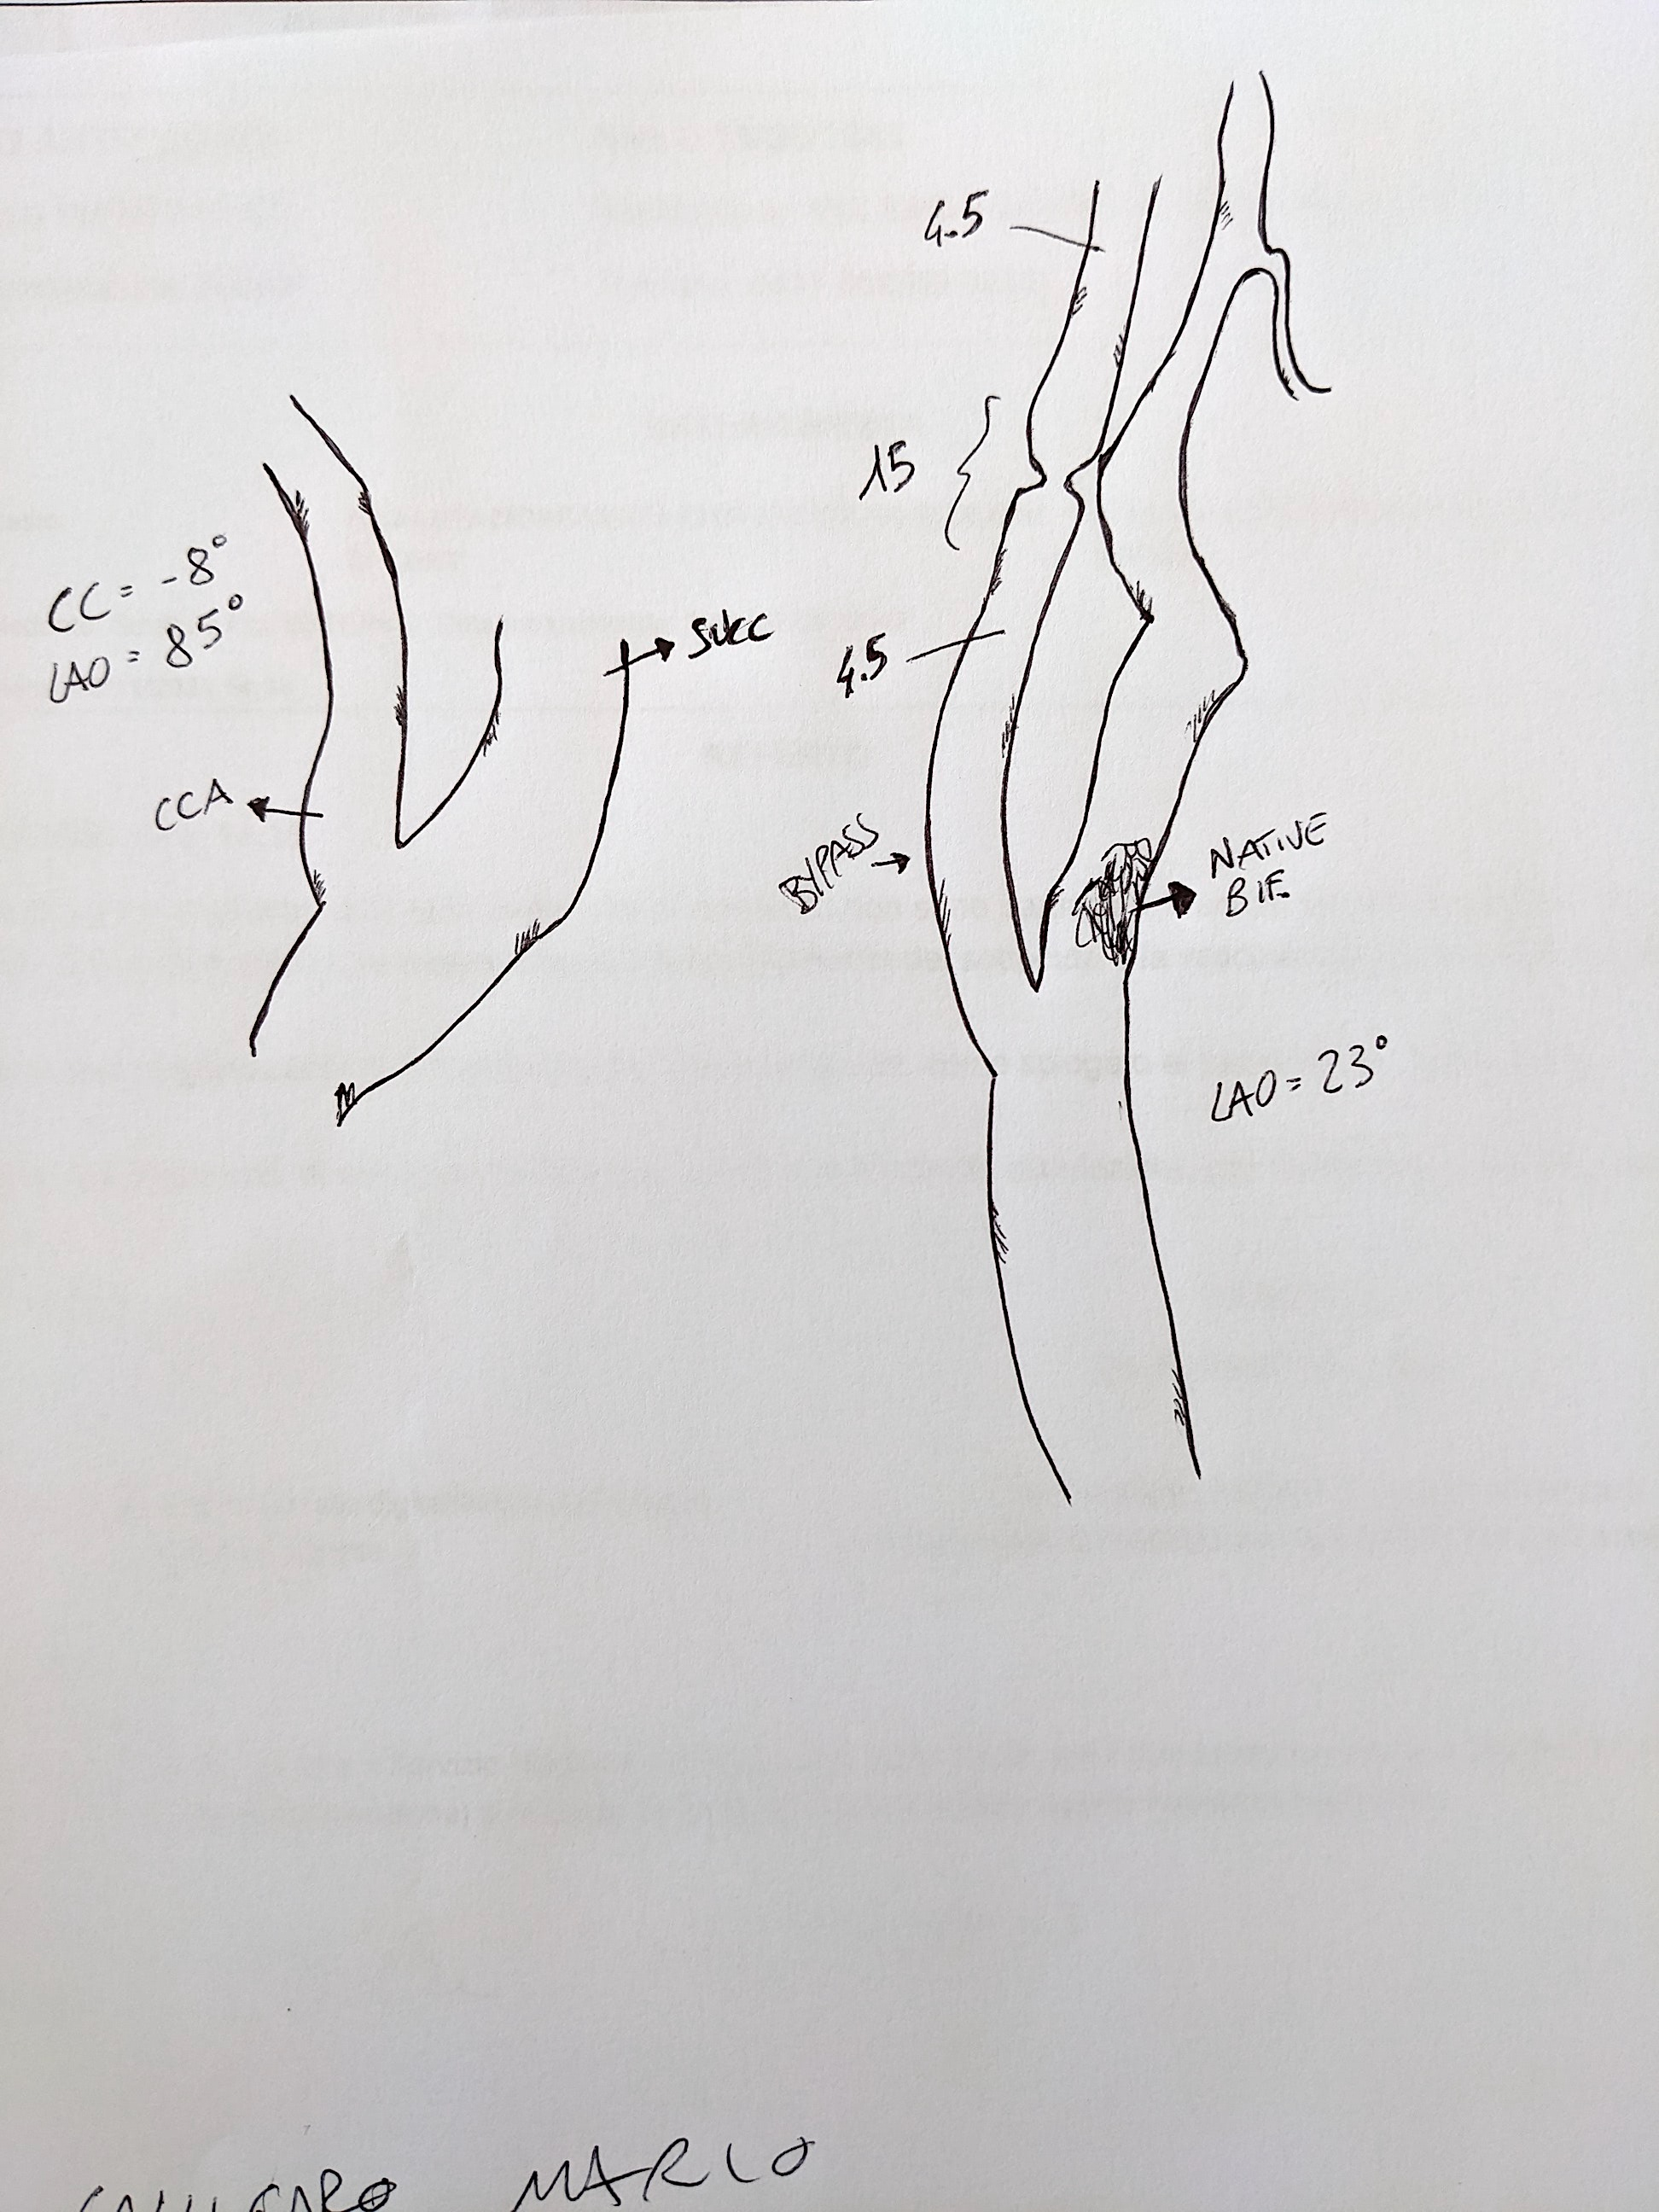 4.5
15
CC = -8°
LAO = 85°
SUCC
4.5
CCA
BYPASS
NATIVE
BIF.
LAO = 23°
MARIO